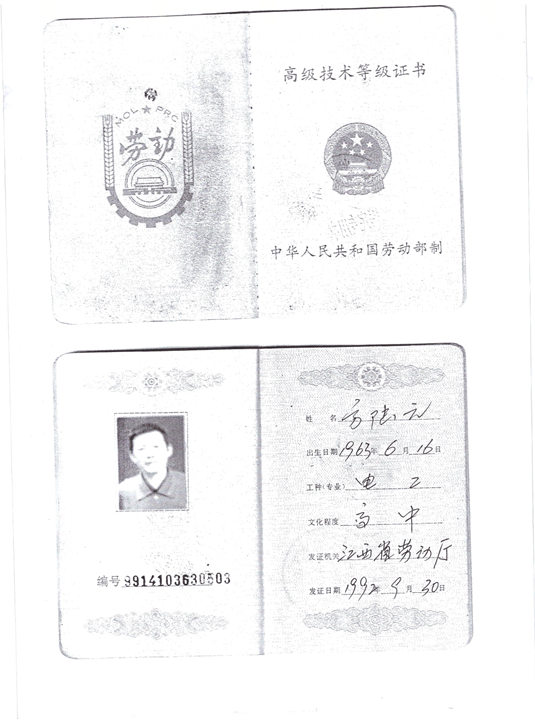 MOL★PRC
劳动
高级技术等级证书
中华人民共和国劳动部制
编号 9914103630503
姓名 方陆元
出生日期 1963年 6月 16日
工种(专业) 电工
文化程度 高中
发证机关 江西省劳动厅
发证日期 1992年 9月 30日